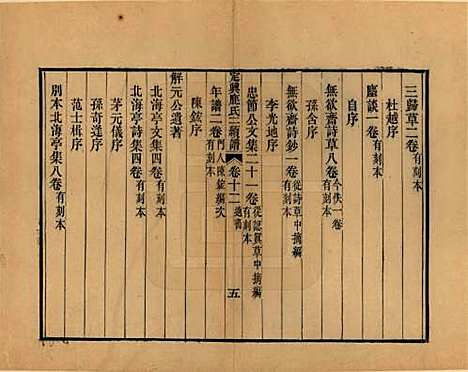 三歸草二卷有刻本
杜越序
麈談一卷有刻本
自序
無欲齋詩草八卷今佚一卷
孫含序
無欲齋詩鈔一卷從詩草中摘編有刻本
李光地序
忠節公文集二十一卷從認真草中摘編有刻本
定興鹿氏二續譜 卷十二 遺書 五
年譜二卷門人陳鋐編次有刻本
陳鋐序
解元公遺著
北海亭文集四卷有刻本
北海亭詩集四卷有刻本
茅元儀序
孫奇逢序
范士楫序
別本北海亭集八卷有刻本